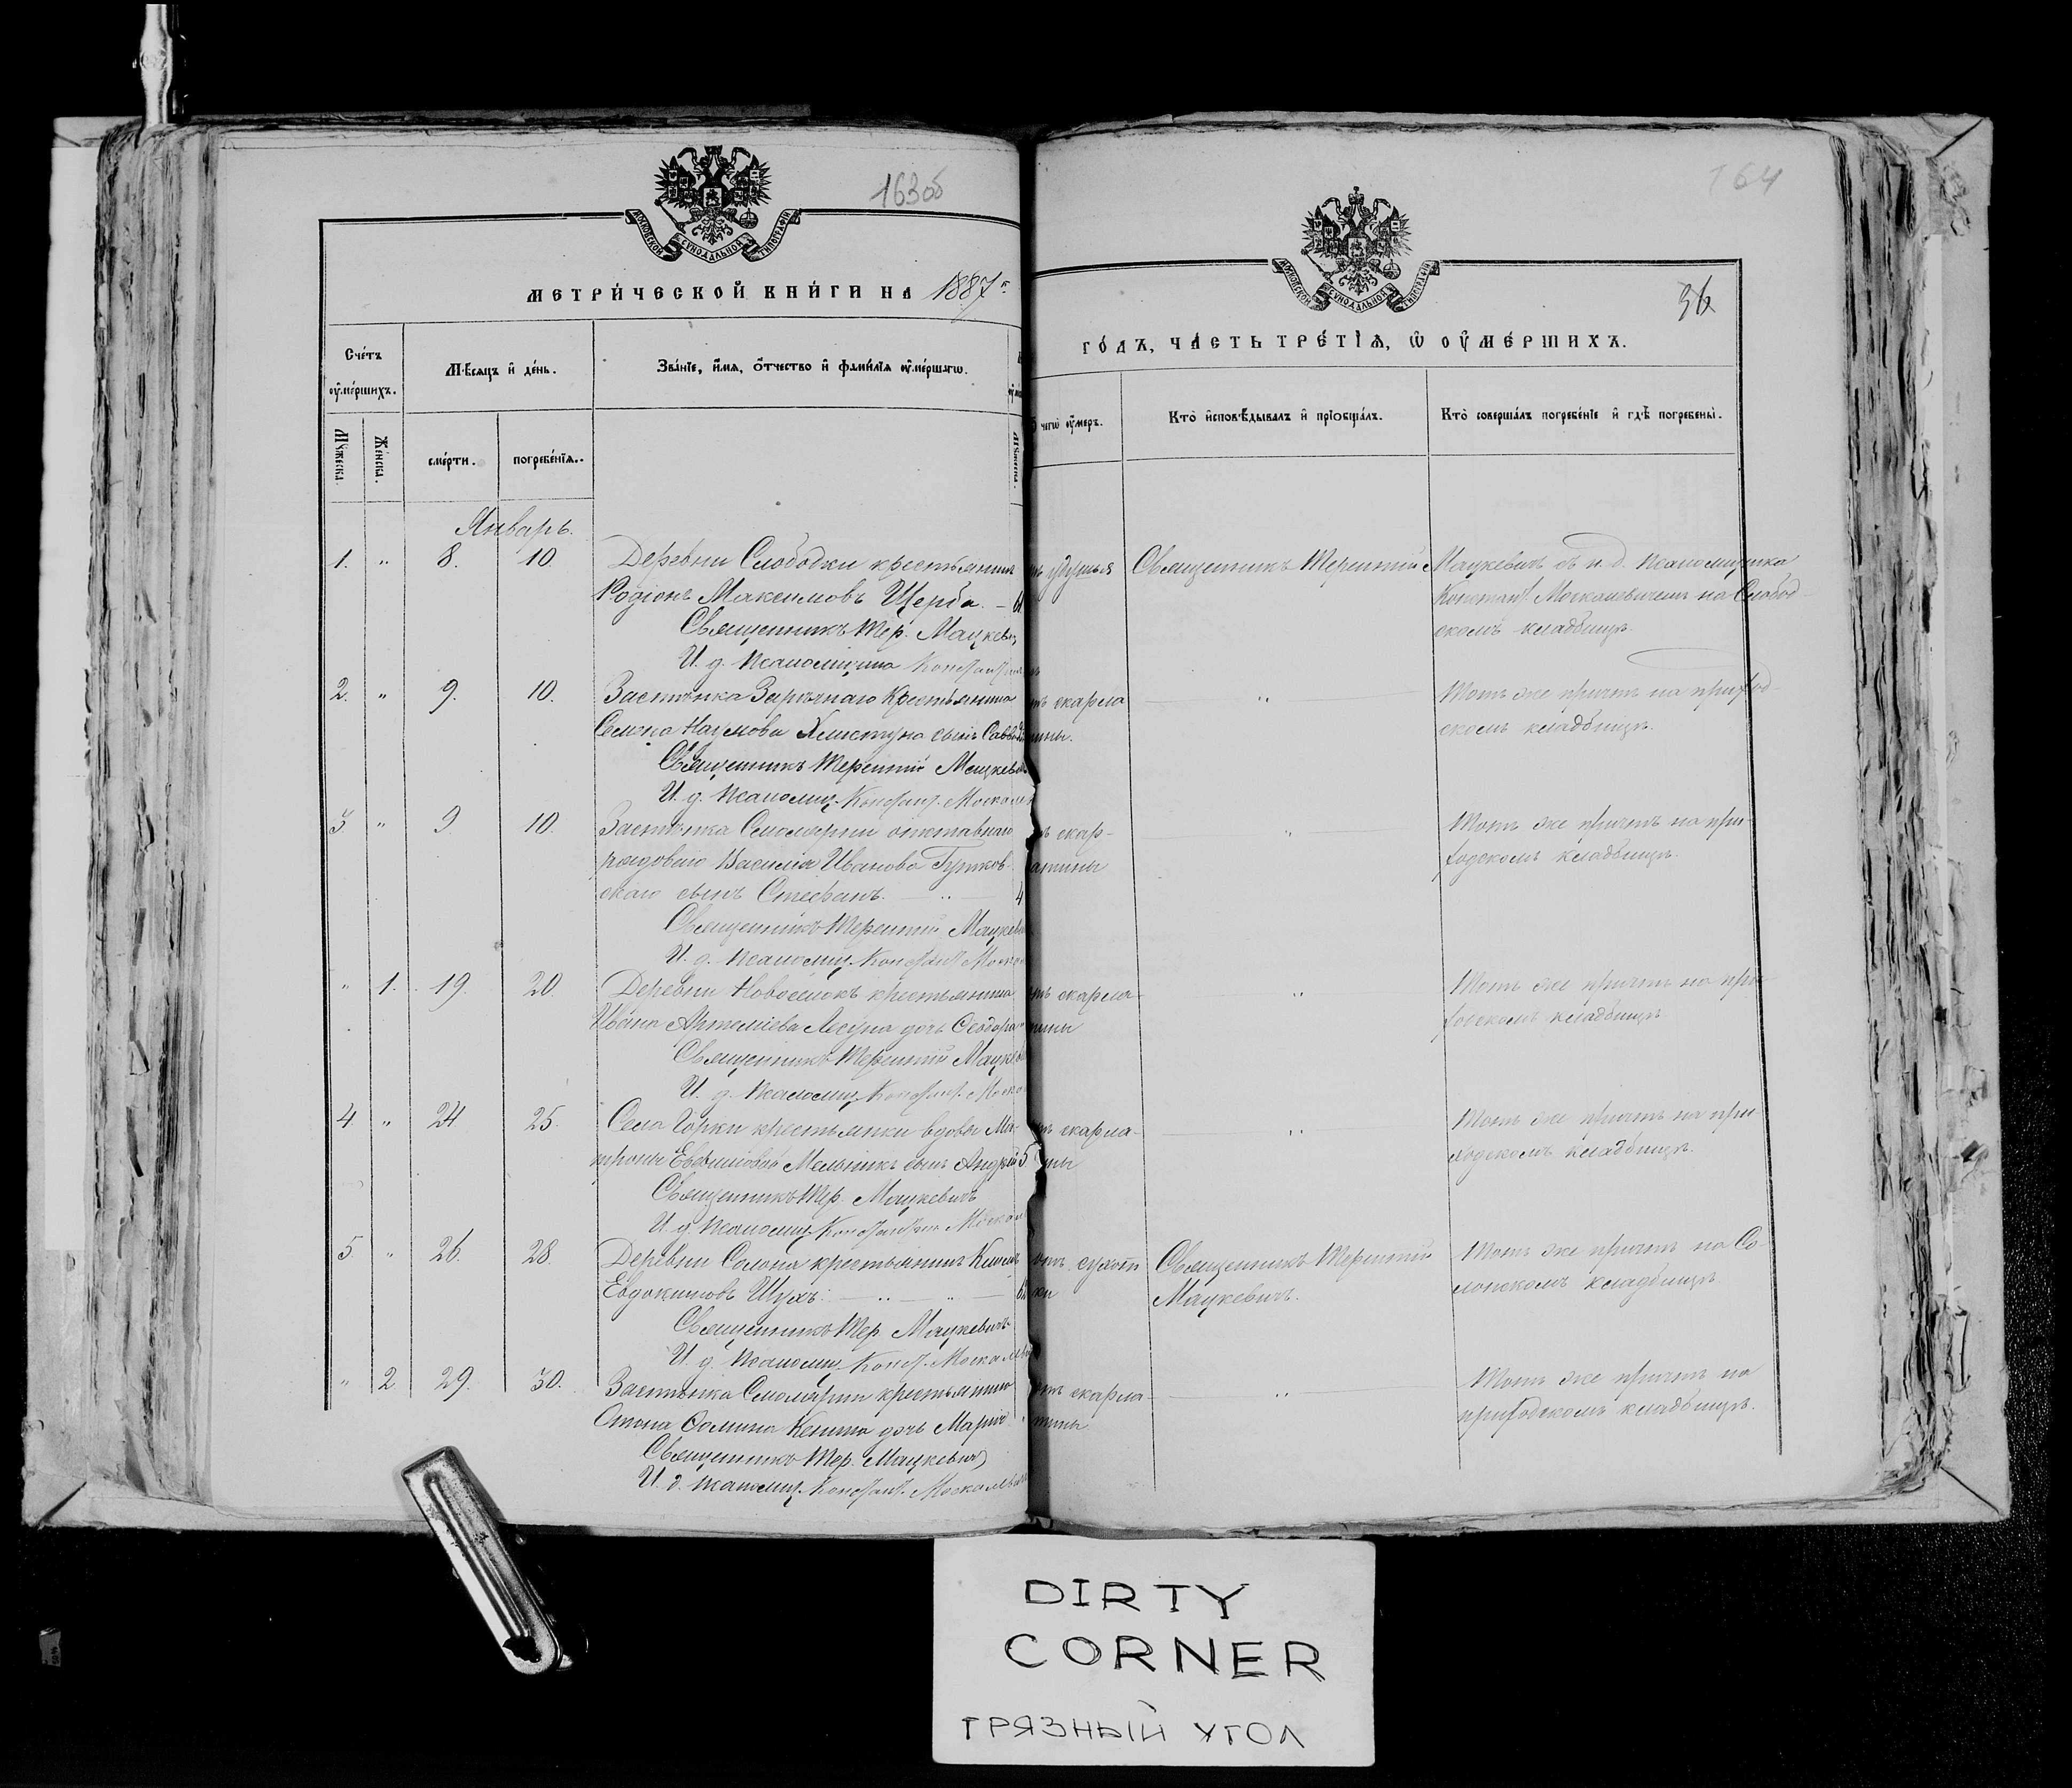 163 об
МОСКОВСКОЙ СѴНОДАЛЬНОЙ ТИПОГРАФІИ
МЕТРИ́ЧЕСКОЙ КНИ́ГИ НА 1887 г.
Сче́тъ оу҆ме́ршихъ.
Мѣсяцъ и҆ де́нь.
Зва́нїе, и҆́мѧ, ѻ҆́тчество и҆ фами́лїѧ оу҆ме́ршагѡ.
Мꙋ́жеска
Же́нска.
сме́рти.
погребе́нїѧ.
Январь.
1. " 8. 10. Деревни Слободки крестьянинъ
Родіонъ Максимовъ Щерба. —
Священникъ Тер. Мацкевичъ
И. д. псаломщика Констант
2. " 9. 10. Застѣнка Зарѣчнаго крестьянина
Семена Наумова сынъ Савва
Священникъ Терентій Мацкевичъ
И. д. псаломщ. Констант. Москал
3 " 9 10. Застѣнка Смолярни отставнаго
рядоваго Василія Иванова Гутков-
скаго сынъ Стефанъ. — " — 4
Священникъ Терентій Мацкеви
И. д. псаломщ. Констант Моск
" 1. 19. 20. Деревни Новоселокъ крестьянина
Ивана Артеміева дочь Ѳеодора
Священникъ Терентій Мацке
И. д. псаломщ. Констант. Моск
4. " 24 25. Села Горки крестьянки вдовы Ма-
троны Мельникъ сынъ Андрей 5
Священникъ Тер. Мацкевичъ
И. д. псаломщ. Константинъ Моска
5 " 26. 28. Деревни Солона крестьянинъ Климъ
Евдокимовъ Шухъ. — " — " —
Священникъ Тер. Мацкевичъ
И. д. псаломщ. Конст. Москалев
" 2 29. 30. Застѣнка Смолярни крестьянина
дочь Марія
Священникъ Тер. Мацкевичъ
И. д. псаломщ. Констант. Москалев
164
МОСКОВСКОЙ СѴНОДАЛЬНОЙ ТИПОГРАФІИ
36
ГО́ДЪ, ЧА́СТЬ ТРЕ́ТЇѦ, Ѡ҆ ОУ҆МЕ́РШИХЪ.
чегѡ̀ оу҆́меръ.
Кто̀ и҆сповѣ́дывалъ и҆ прїѡбща́лъ.
Кто̀ соверша́лъ погребе́нїе и҆ гдѣ̀ погребены̀.
удушья Священникъ Терентій Мацкевичъ съ и. д. псаломщика
Констант. Москалевичемъ на Слобод-
скомъ кладбищѣ.
скарла " Тотъ же причтъ на приход-
тины. скомъ кладбищѣ.
скар- " Тотъ же причтъ на при-
латины ходскомъ кладбищѣ.
скарла- " Тотъ же причтъ на при-
тины ходскомъ кладбищѣ
скарла- " Тотъ же причтъ на при-
тины ходскомъ кладбищѣ.
отъ сухот Священникъ Терентій Тотъ же причтъ на Со-
ки Мацкевичъ. лонскомъ кладбищѣ
отъ скарла- " Тотъ же причтъ на
тины приходскомъ кладбищѣ.
DIRTY
CORNER
ГРЯЗНЫЙ УГОЛ